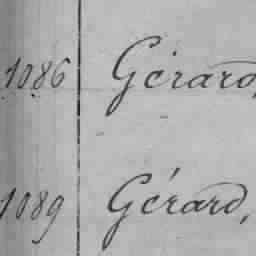 1086 Gérard,
1089 Gérard,